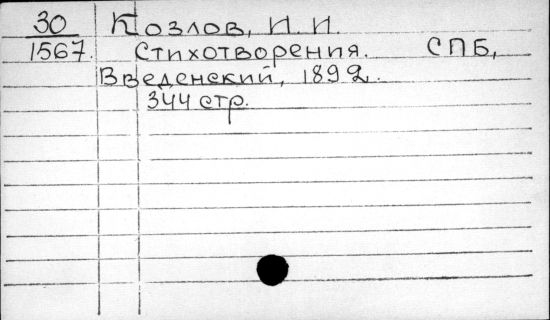 30 Козлов, И. И.
1567. Стихотворения. СПБ,
Введенский, 1892.
344 стр.